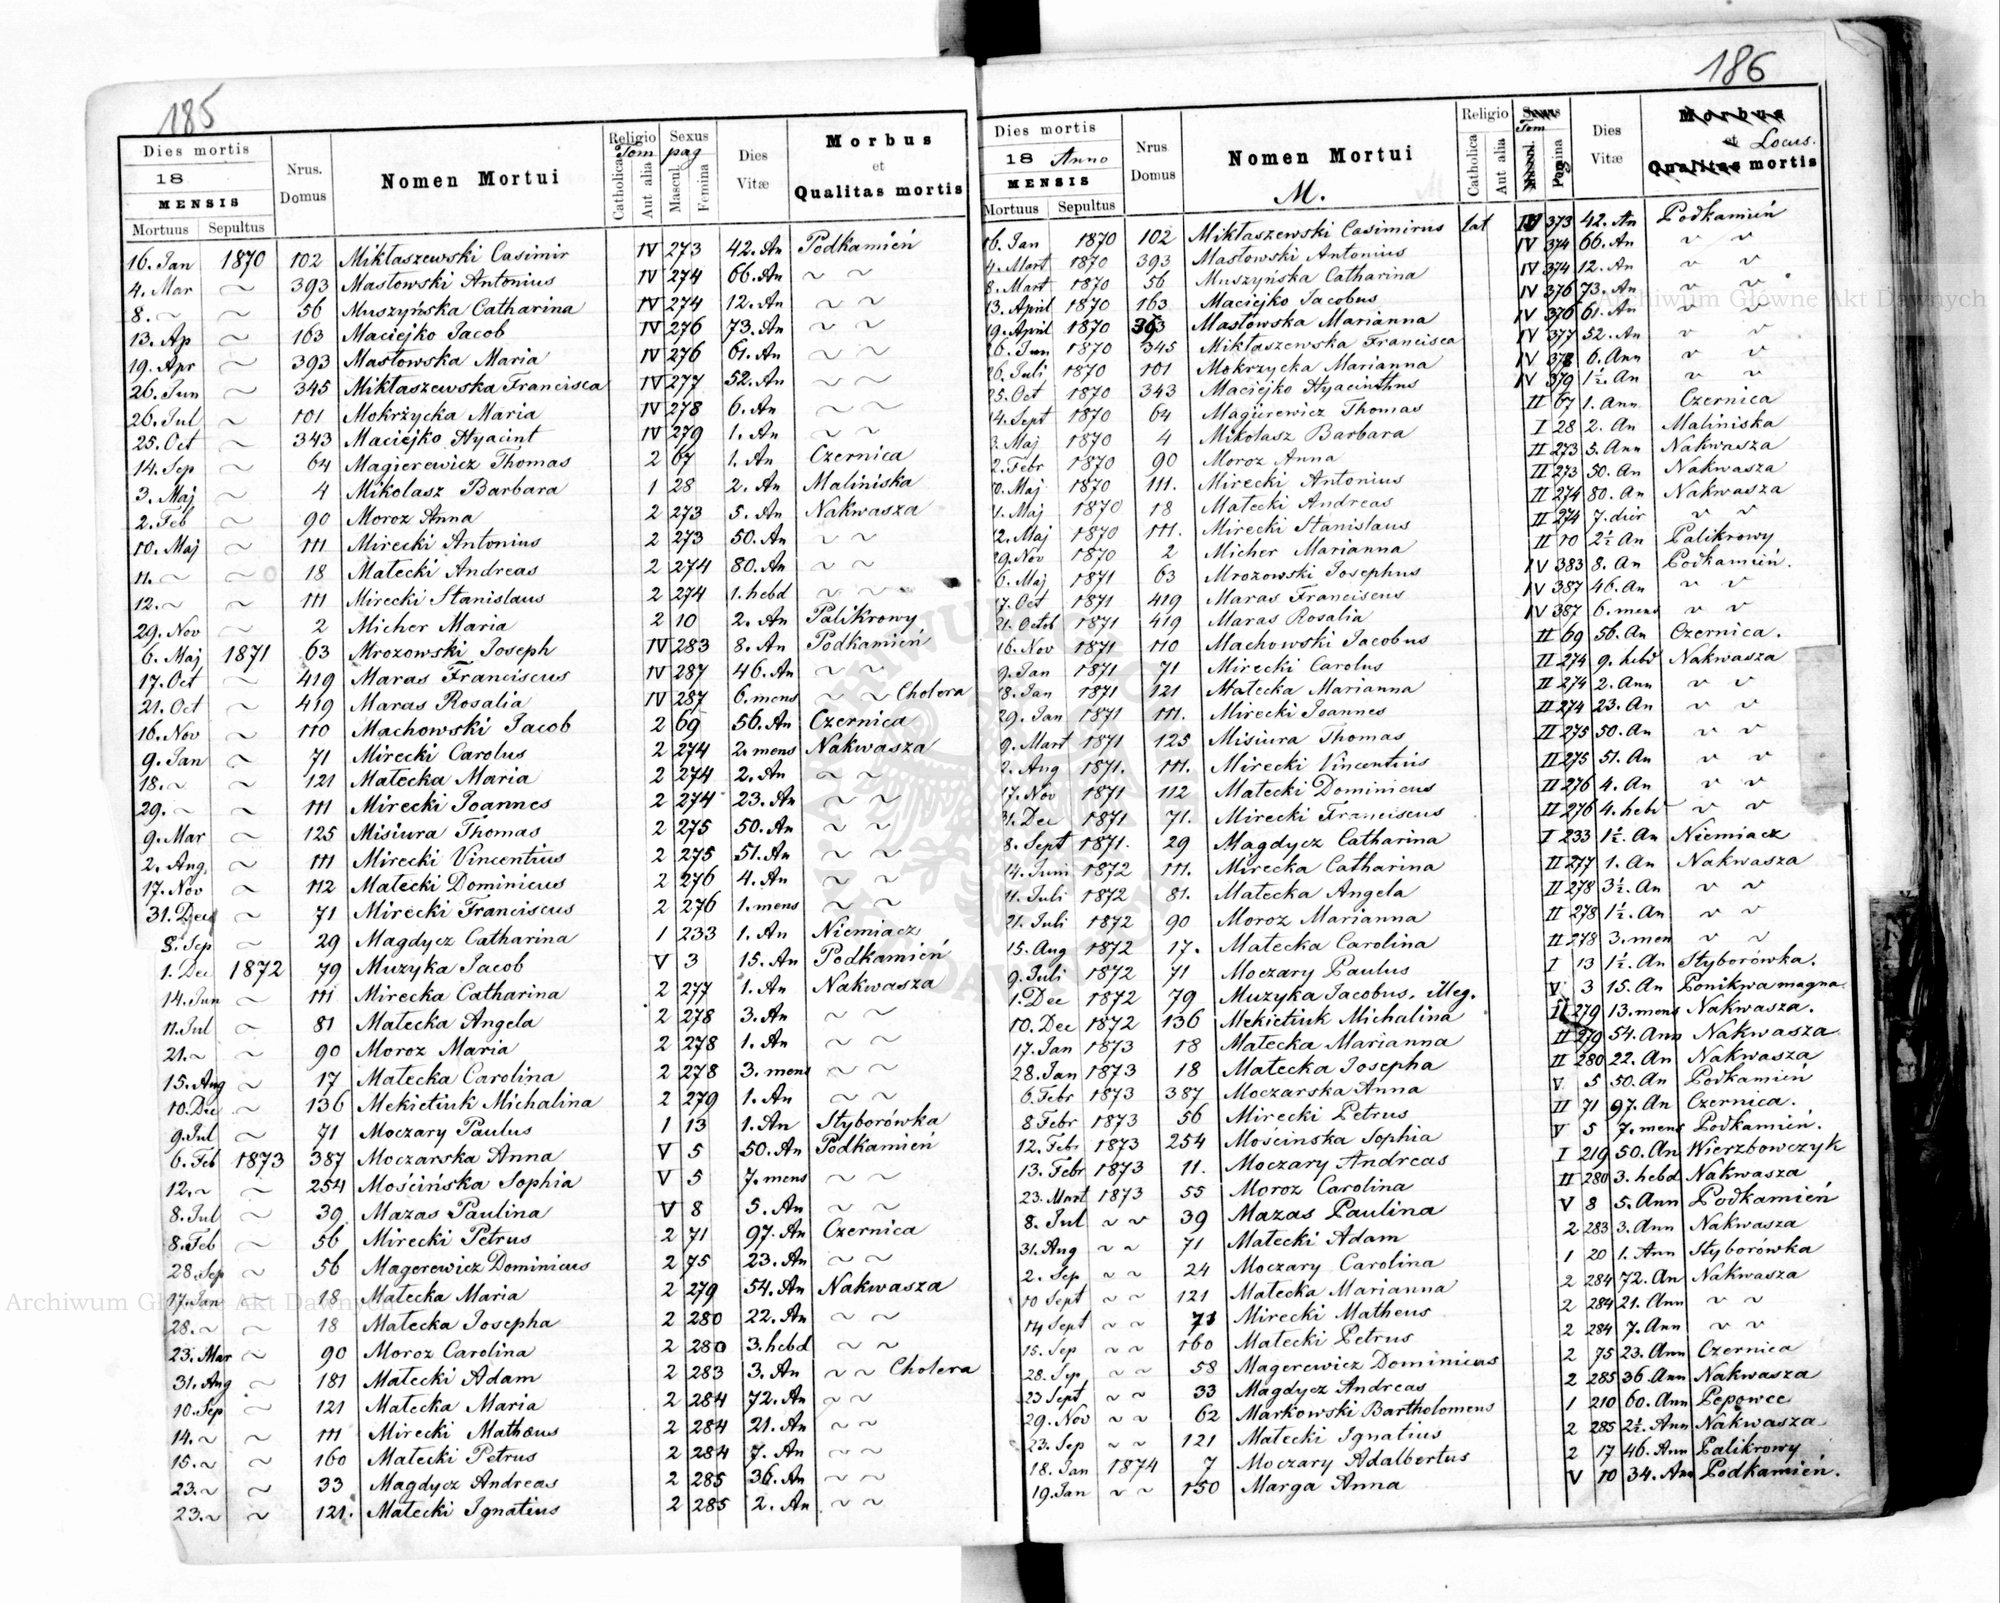 185
Dies mortis
18
MENSIS
Mortuus Sepultus
Nrus. Domus
Nomen Mortui
Religio
Tom
Catholica
Aut alia
Sexus
pag
Mascul.
Femina
Dies Vitæ
Morbus
et
Qualitas mortis
16. Jan 1870 102 Mikłaszewski Casimir IV 273 42. An Podkamień
4. Mar ~ 393 Masłowski Antonius IV 274 66. An ~ ~
8. ~ ~ 56 Muszyńska Catharina IV 274 12. An ~ ~
13. Ap ~ 163 Maciejko Jacob IV 276 73. An ~ ~
19. Apr ~ 393 Masłowska Maria IV 276 61. An ~ ~
26. Jun ~ 345 Mikłaszewska Francisca IV 277 52. An ~ ~
26. Jul ~ 101 Mokrzycka Maria IV 278 6. An ~ ~
25. Oct ~ 343 Maciejko Hyacint IV 279 1. An ~ ~
14. Sep ~ 64 Magierewicz Thomas 2 67 1. An Czernica
3. Maj ~ 4 Mikolasz Barbara 1 28 2. An Maliniska
2. Feb ~ 90 Moroz Anna 2 273 5. An Nakwasza
10. Maj ~ 111 Mirecki Antonius 2 273 50. An ~ ~
11. ~ ~ 18 Małecki Andreas 2 274 80. An ~ ~
12. ~ ~ 111 Mirecki Stanislaus 2 274 1. hebd ~ ~
29. Nov ~ 2 Micher Maria 2 10 2. An Palikrowy
6. Maj 1871 63 Mrozowski Joseph IV 283 8. An Podkamień
17. Oct ~ 419 Maras Franciscus IV 287 46. An ~ ~
21. Oct ~ 419 Maras Rosalia IV 287 6. mens ~ ~ Cholera
16. Nov ~ 110 Machowski Jacob 2 69 56. An Czernica
9. Jan ~ 71 Mirecki Carolus 2 274 2. mens Nakwasza
18. ~ ~ 121 Małecka Maria 2 274 2. An ~ ~
29. ~ ~ 111 Mirecki Joannes 2 274 23. An ~ ~
9. Mar ~ 125 Misiura Thomas 2 275 50. An ~ ~
2. Aug. ~ 111 Mirecki Vincentius 2 275 51. An ~ ~
17. Nov ~ 112 Małecki Dominicus 2 276 4. An ~ ~
31. Dec ~ 71 Mirecki Franciscus 2 276 1. mens ~ ~
8. Sep ~ 29 Magdycz Catharina 1 233 1. An Niemiacz
1. Dec 1872 79 Muzyka Jacob V 3 15. An Podkamień
14. Jun ~ 111 Mirecka Catharina 2 277 1. An Nakwasza
11. Jul ~ 81 Małecka Angela 2 278 3. An ~ ~
21. ~ ~ 90 Moroz Maria 2 278 1. An ~ ~
15. Aug ~ 17 Małecka Carolina 2 278 3. mens ~ ~
10. Dec ~ 136 Mekietiuk Michalina 2 279 1. An ~ ~
9. Jul ~ 71 Moczary Paulus 1 13 1. An Styborówka
6. Feb 1873 387 Moczarska Anna V 5 50. An Podkamień
12. ~ ~ 254 Mościńska Sophia V 5 7. mens ~ ~
8. Jul ~ 39 Mazas Paulina V 8 5. An ~ ~
8. Feb ~ 56 Mirecki Petrus 2 71 97. An Czernica
28. Sep ~ 56 Magerewicz Dominicus 2 75 23. An ~ ~
17. Jan ~ 18 Małecka Maria 2 279 54. An Nakwasza
28. ~ ~ 18 Małecka Josepha 2 280 22. An ~ ~
23. Mar ~ 90 Moroz Carolina 2 280 3. hebd ~ ~
31. Aug ~ 181 Małecki Adam 2 283 3. An ~ ~ Cholera
10. Sep ~ 121 Małecka Maria 2 284 72. An ~ ~
14. ~ ~ 111 Mirecki Mathæus 2 284 21. An ~ ~
15. ~ ~ 160 Małecki Petrus 2 284 7. An ~ ~
23. ~ ~ 33 Magdycz Andreas 2 285 36. An ~ ~
23. ~ ~ 121. Małecki Ignatius 2 285 2. An ~ ~
186
Dies mortis
18 Anno
MENSIS
Mortuus Sepultus
Nrus Domus
Nomen Mortui
M.
Religio
Catholica
Aut alia
Sexus
Tom
Mascul.
Pagina
Dies Vitæ
Morbus
et Locus.
Qualitas mortis
16. Jan 1870 102 Mikłaszewski Casimirus lat IV 373 42. An Podkamień
4. Mart 1870 393 Masłowski Antonius IV 374 66. An ~ ~
8. Mart 1870 56 Muszyńska Catharina IV 374 12. An ~ ~
13. April 1870 163 Maciejko Jacobus IV 376 73. An ~ ~
19. April 1870 393 Masłowska Marianna IV 376 61. An ~ ~
26. Jun 1870 345 Mikłaszewska Francisca IV 377 52. An ~ ~
26. Juli 1870 101 Mokrzycka Marianna IV 378 6. Ann ~ ~
25. Oct 1870 343 Maciejko Hyacinthus IV 379 1½. An ~ ~
14. Sept 1870 64 Magierewicz Thomas II 67 1. Ann Czernica
3. Maj 1870 4 Mikolasz Barbara I 28 2. An Maliniska
2. Febr 1870 90 Moroz Anna II 273 5. Ann Nakwasza
10. Maj 1870 111. Mirecki Antonius II 273 50. An Nakwasza
11. Maj 1870 18 Małecki Andreas II 274 80. An Nakwasza
12. Maj 1870 111. Mirecki Stanislaus II 274 7. dier ~ ~
29. Nov 1870 2 Micher Marianna II 10 2½ An Palikrowy
6. Maj 1871 63 Mrozowski Josephus IV 383 8. An Podkamień.
17. Oct 1871 419 Maras Franciscus IV 387 46. An ~ ~
21. Octob 1871 419 Maras Rosalia IV 387 6. mens ~ ~
16. Nov 1871 110 Machowski Jacobus II 69 56. An Czernica.
9. Jan 1871 71 Mirecki Carolus II 274 9. hebd Nakwasza
18. Jan 1871 121 Małecka Marianna II 274 2. Ann ~ ~
29. Jan 1871 111. Mirecki Joannes II 274 23. An ~ ~
9. Mart 1871 125 Misiura Thomas II 275 50. An ~ ~
2. Aug 1871. 111. Mirecki Vincentius II 275 51. An ~ ~
17. Nov 1871 112 Małecki Dominicus II 276 4. An ~ ~
31. Dec 1871 71. Mirecki Franciscus II 276 4. hebd ~ ~
8. Sept 1871. 29 Magdycz Catharina I 233 1½. An Niemiacz
14. Juni 1872 111. Mirecka Catharina II 277 1. An Nakwasza
11. Juli 1872 81. Małecka Angela II 278 3½. An ~ ~
21. Juli 1872 90 Moroz Marianna II 278 1½. An ~ ~
15. Aug 1872 17. Małecka Carolina II 278 3. men ~ ~
9. Juli 1872 71 Moczary Paulus I 13 1½. An Styborówka.
1. Dec 1872 79 Muzyka Jacobus, illeg. V 3 15. An Ponikwa magna
10. Dec 1872 136 Mekietiuk Michalina II 279 13. mens Nakwasza.
17. Jan 1873 18 Małecka Marianna II 279 54. Ann Nakwasza
28. Jan 1873 18 Małecka Josepha II 280 22. An Nakwasza
6. Febr 1873 387 Moczarska Anna V 5 50. An Podkamień
8 Febr 1873 56 Mirecki Petrus II 71 97. An Czernica.
12. Febr 1873 254 Mościnska Sophia V 5 7. mens Podkamień.
13. Febr 1873 11. Moczary Andreas I 219 50. An Wierzbowczyk
23. Mart 1873 55 Moroz Carolina II 280 3. hebd Nakwasza
8. Jul ~ ~ 39 Mazas Paulina V 8 5. Ann Podkamień
31. Aug ~ ~ 71 Małecki Adam 2 283 3. Ann Nakwasza
2. Sep ~ ~ 24 Moczary Carolina 1 20 1. Ann Styborówka
10 Sept ~ ~ 121 Małecka Marianna 2 284 72. An Nakwasza
14 Sept ~ ~ 71 Mirecki Matheus 2 284 21. Ann ~ ~
15. Sep ~ ~ 160 Małecki Petrus 2 284 7. Ann ~ ~
28. Sep ~ ~ 58 Magerewicz Dominicus 2 75 23. Ann Czernica
23 Sept ~ ~ 33 Magdycz Andreas 2 285 36. Ann Nakwasza
29. Nov ~ ~ 62 Markowski Bartholomeus 1 210 60. Ann Pepowce
23. Sep ~ ~ 121 Małecki Ignatius 2 285 2½. Ann Nakwasza
18. Jan 1874 7 Moczary Adalbertus 2 17 46. Ann Palikrowy
19. Jan ~ ~ 150 Marga Anna V 10 34. Ann Podkamień.
Archiwum Główne Akt Dawnych
Archiwum Główne Akt Dawnych